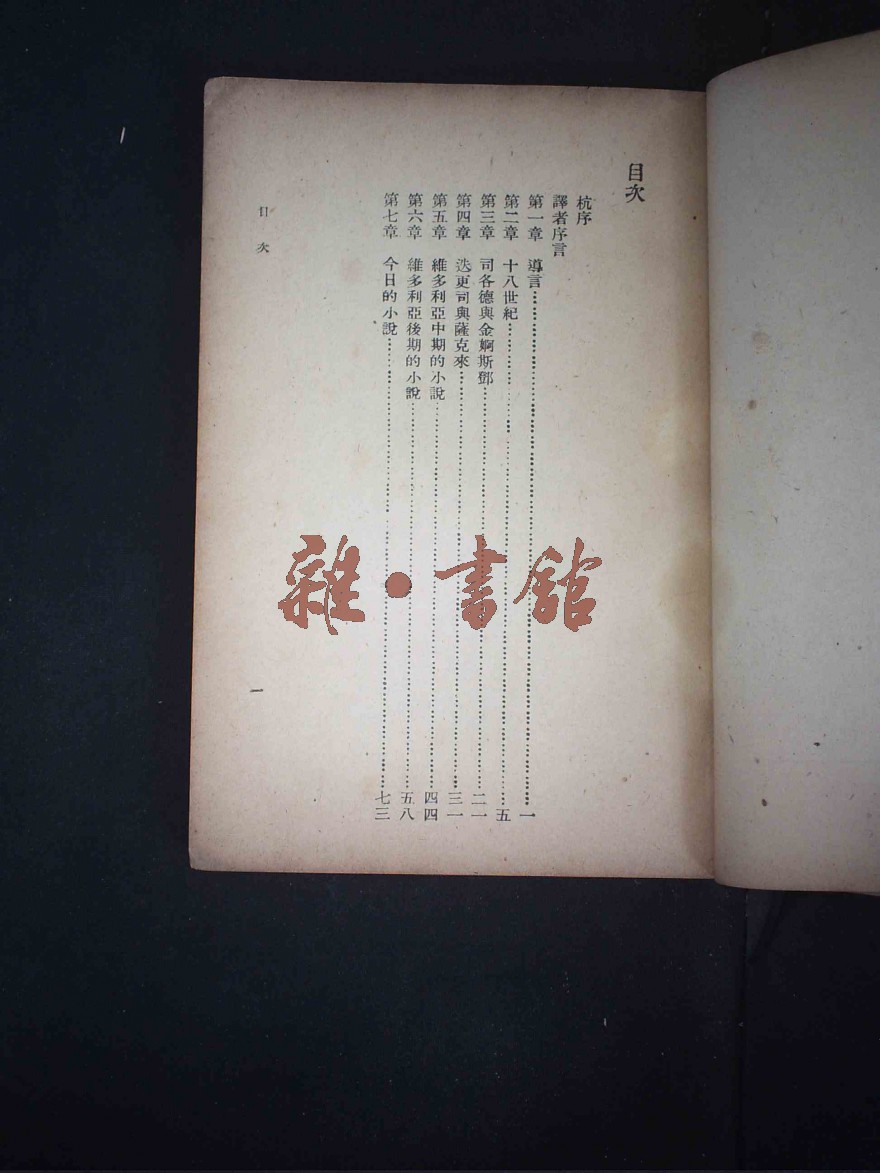 目次
杭序
譯者序言
第一章 導言……一
第二章 十八世紀……五
第三章 司各德與金婀斯鄧……二一
第四章 迭更司與薩克來……三一
第五章 維多利亞中期的小說……四四
第六章 維多利亞後期的小說……五八
第七章 今日的小說……七三
目次 一
雜·書館